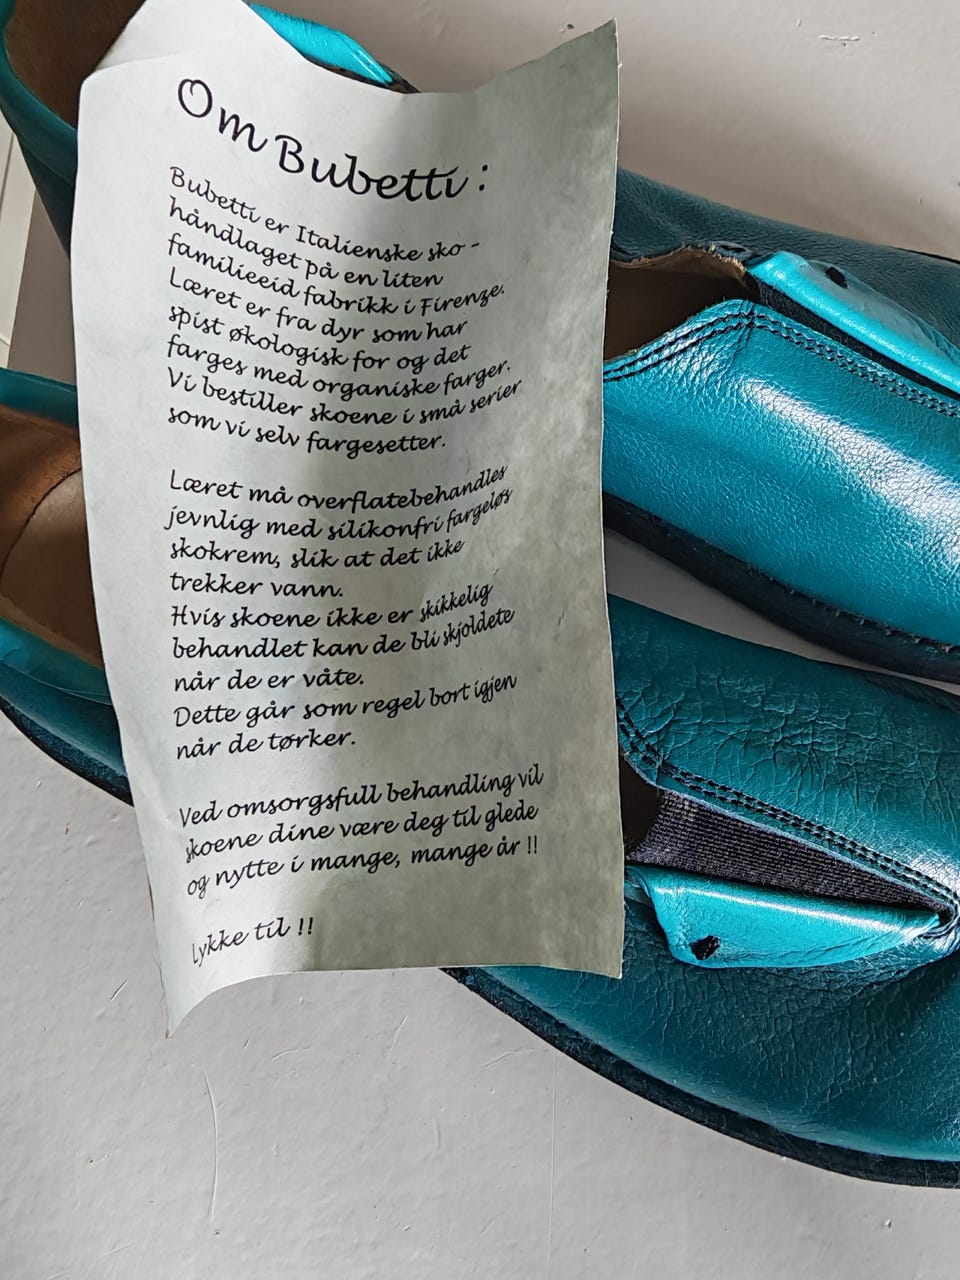 Om Bubetti :
Bubetti er Italienske sko -
håndlaget på en liten
familieeid fabrikk i Firenze.
Læret er fra dyr som har
spist økologisk for og det
farges med organiske farger.
Vi bestiller skoene i små serier
som vi selv fargesetter.
Læret må overflatebehandles
jevnlig med silikonfri fargeløs
skokrem, slik at det ikke
trekker vann.
Hvis skoene ikke er skikkelig
behandlet kan de bli skjoldete
når de er våte.
Dette går som regel bort igjen
når de tørker.
Ved omsorgsfull behandling vil
skoene dine være deg til glede
og nytte i mange, mange år !!
Lykke til !!